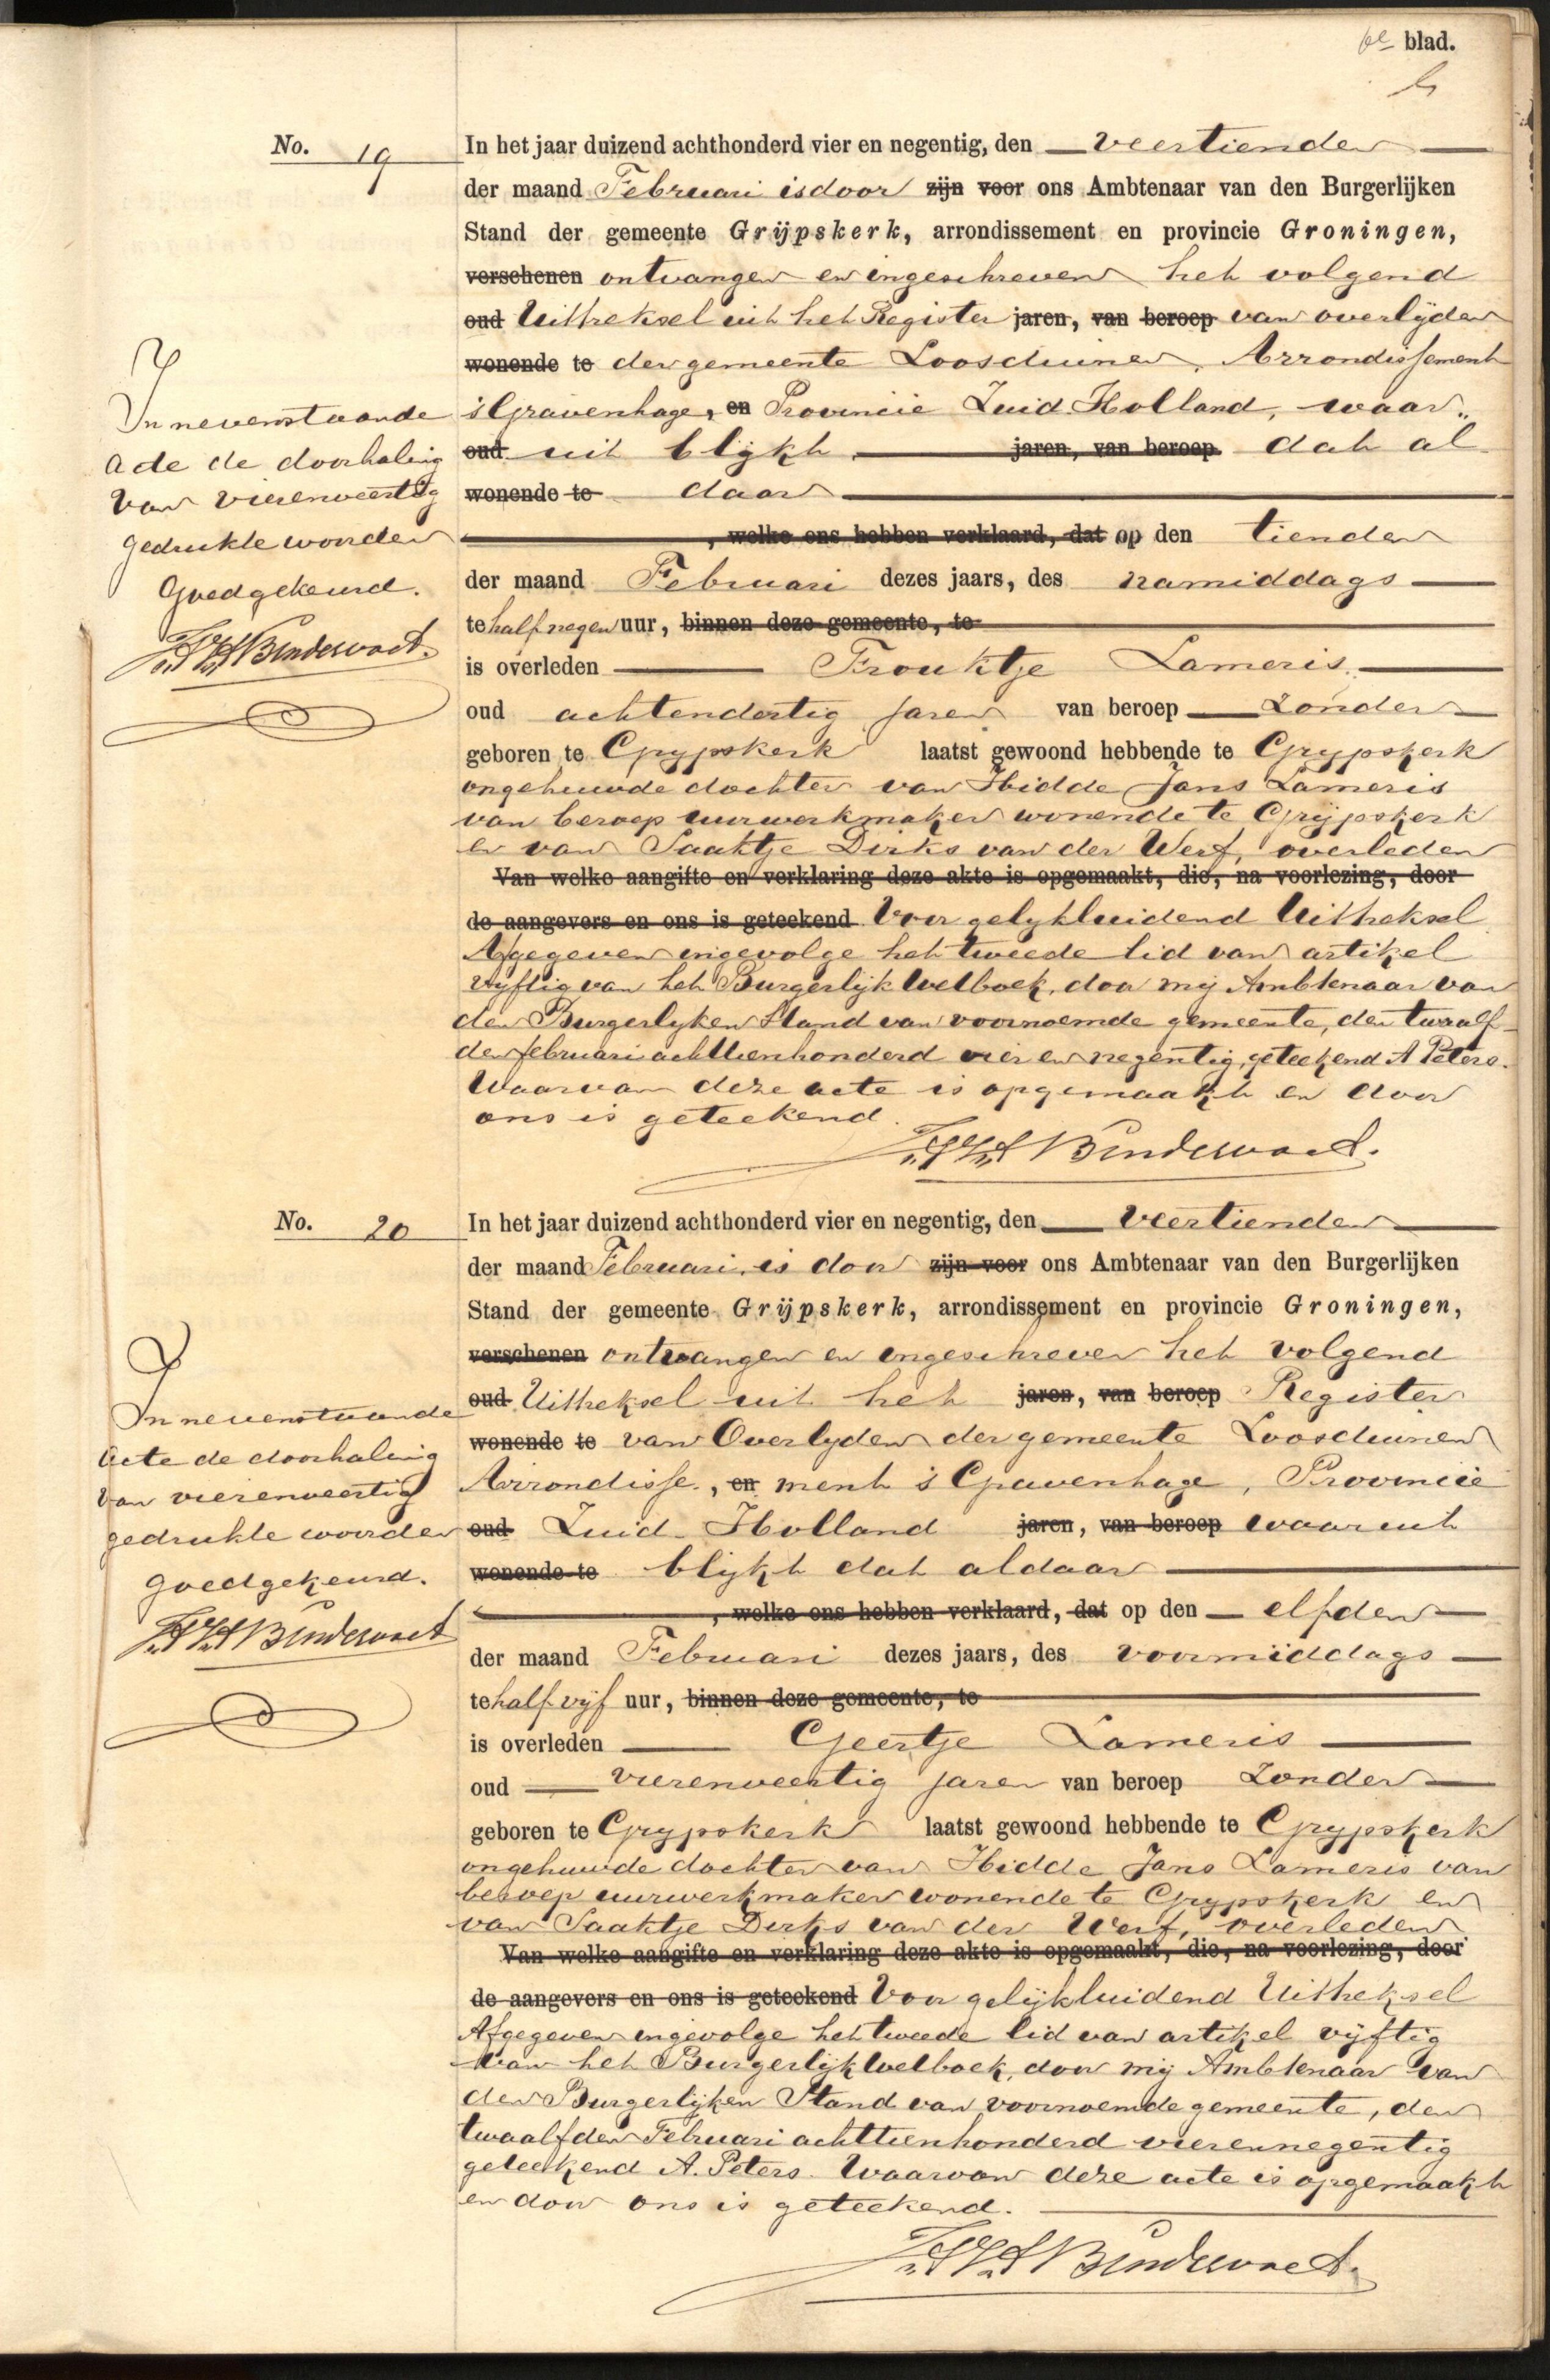 6e blad.
No. 19
In het jaar duizend achthonderd vier en negentig, den veertienden
der maand Februari is door zijn voor ons Ambtenaar van den Burgerlijken
Stand der gemeente Grijpskerk, arrondissement en provincie Groningen,
verschenen ontvangen en ingeschreven het volgend
oud Uittreksel uit het Register jaren, van beroep van overlijden
wonende te der gemeente Loosduinen, Arrondissement
's Gravenhage, en Provincie Zuid Holland, waar„
oud uit blijkt jaren, van beroep dat al
wonende te daar
, welke ons hebben verklaard, dat op den tienden
der maand Februari dezes jaars, des namiddags
te half negen uur, binnen deze gemeente, te
is overleden Frouktje Lameris
oud achtendertig jaren van beroep Zonder
geboren te Grijpskerk laatst gewoond hebbende te Grijpskerk
ongehuwde dochter van Hidde Jans Lameris
van beroep uurwerkmaker wonende te Grijpskerk
en van Saaktje Dirks van der Werf, overleden
Van welke aangifte en verklaring deze akte is opgemaakt, die, na voorlezing, door
de aangevers en ons is geteekend Voor gelijkluidend Uittreksel
Afgegeven ingevolge het tweede lid van artikel
vijftig van het Burgerlijk Wetboek, door mij Ambtenaar van
den Burgerlijken Stand van voornoemde gemeente, den twaalf-
den februari achttienhonderd vier en negentig, geteekend A Peters.
Waarvan deze acte is opgemaakt en door
ons is geteekend.
Bindervoet.
In nevenstaande
acte de doorhaling
van vierenveertig
gedrukte woorden
Goedgekeurd.
Bindervoet.
No. 20
In het jaar duizend achthonderd vier en negentig, den veertienden
der maand Februari, is door zijn voor ons Ambtenaar van den Burgerlijken
Stand der gemeente Grijpskerk, arrondissement en provincie Groningen,
verschenen ontvangen en ingeschreven het volgend
oud Uittreksel uit het jaren, van beroep Register
wonende te van Overlijden der gemeente Loosduinen
Arrondisse„, en ment 's Gravenhage, Provincie
oud Zuid-Holland jaren, van beroep waaruit
wonende te blijkt dat aldaar
, welke ons hebben verklaard, dat op den elfden
der maand Februari dezes jaars, des voormiddags
te half vijf uur, binnen deze gemeente, te
is overleden Geertje Lameris
oud vierenveertig jaren van beroep Zonder
geboren te Grijpskerk laatst gewoond hebbende te Grijpskerk
ongehuwde dochter van Hidde Jans Lameris van
beroep uurwerkmaker wonende te Grijpskerk en
van Saaktje Derks van der Werf, overleden
Van welke aangifte en verklaring deze akte is opgemaakt, die, na voorlezing, door
de aangevers en ons is geteekend Voor gelijkluidend Uittreksel
Afgegeven ingevolge het tweede lid van artikel vijftig
van het Burgerlijk Wetboek, door mij Ambtenaar van
den Burgerlijken Stand van voornoemde gemeente, den
twaalfden Februari achttienhonderd vierennegentig
geteekend A. Peters. Waarvan deze acte is opgemaakt
en door ons is geteekend.
Bindervoet.
In nevenstaande
acte de doorhaling
van vierenveertig
gedrukte woorden
goedgekeurd.
Bindervoet